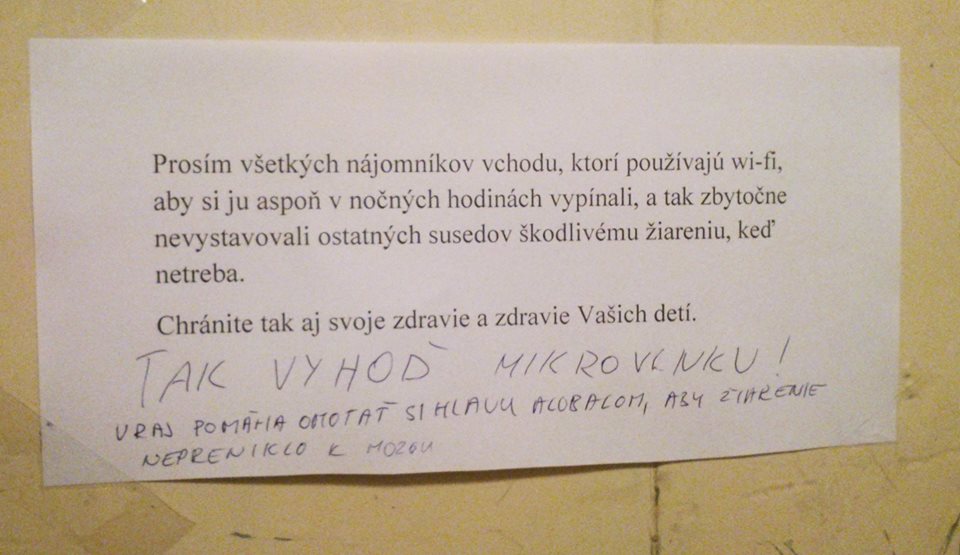 Prosím všetkých nájomníkov vchodu, ktorí používajú wi-fi,
aby si ju aspoň v nočných hodinách vypínali, a tak zbytočne
nevystavovali ostatných susedov škodlivému žiareniu, keď
netreba.
Chránite tak aj svoje zdravie a zdravie Vašich detí.
TAK VYHOĎ MIKROVLNKU!
VRAJ POMÁHA OMOTAŤ SI HLAVU ALOBALOM, ABY ŽIARENIE
NEPRENIKLO K MOZGU